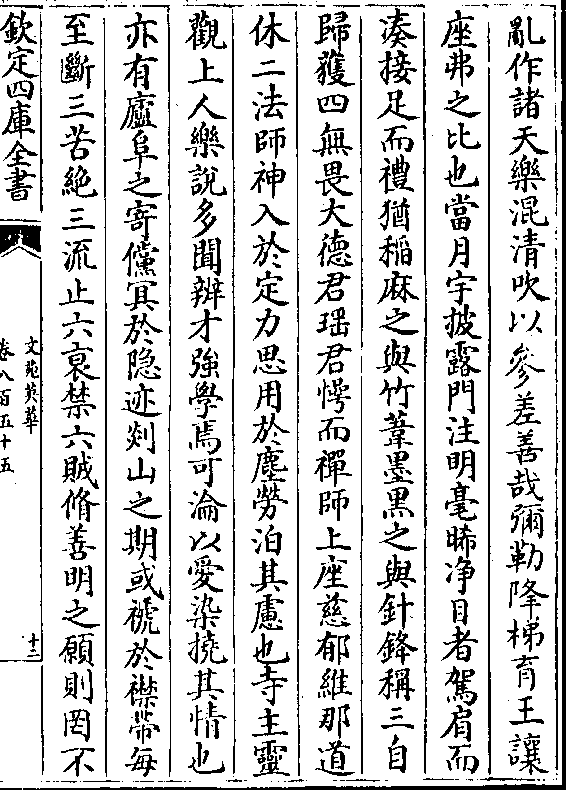 亂作諸天樂混清吹以參差善哉彌勒降梯育王讓
座弗之比也當月宇披露門注明毫晞净目者駕肩而
湊接足而禮猶稲麻之與竹葦墨黑之與針鋒稱三自
歸獲四無畏大徳君瑶君愕而禪師上座慈郁維那道
休二法師神入於定力思用於塵勞泊其慮也寺主靈
觀上人樂説多聞辯才強學焉可淪以愛染撓其情也
亦有廬阜之寄儻冥於隐迹剡山之期或褫於襟帶每
至斷三苦絶三流止六裒禁六賊脩善明之願則罔不
欽定四庫全書
文苑英華
卷八百五十五
十三